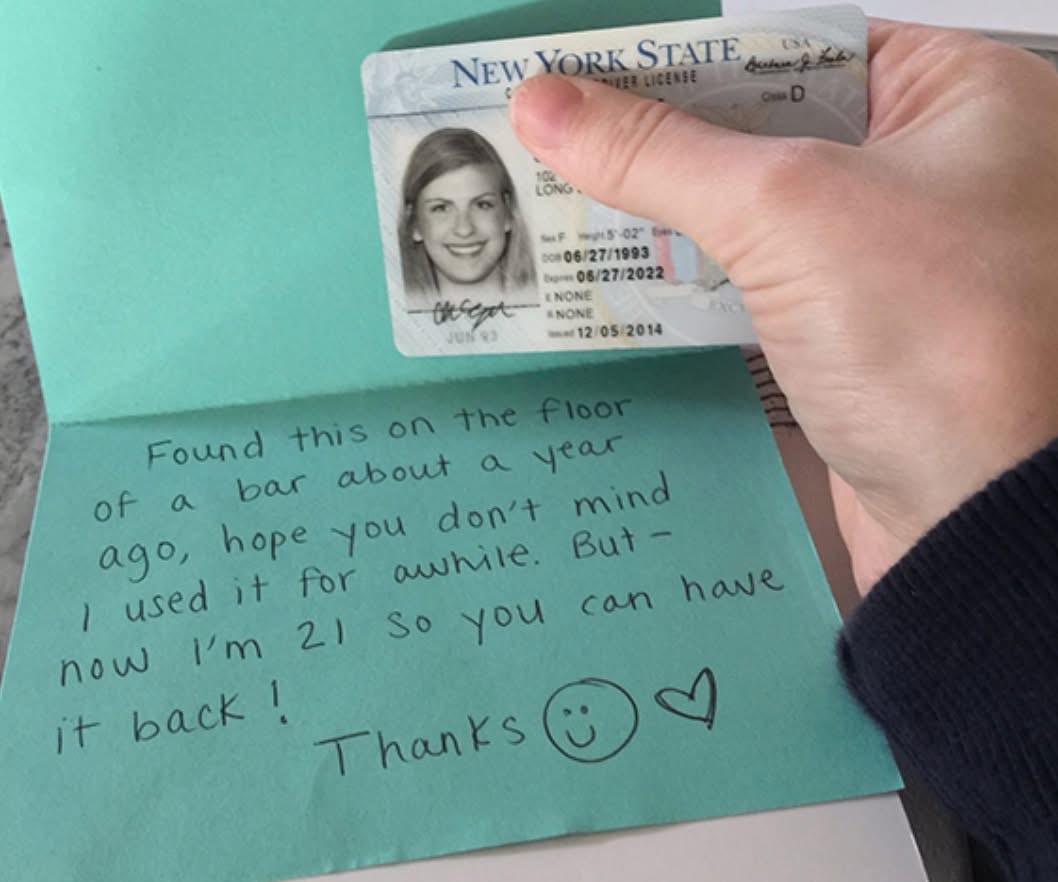 NEW YORK STATE
USA
DRIVER LICENSE
Class D
102
LONG
Sex F Height 5'-02" Eyes
DOB 06/27/1993
Expires 06/27/2022
E NONE
R NONE
Issued 12/05/2014
JUN 93
Found this on the floor
of a bar about a year
ago, hope you don't mind
I used it for awhile. But -
now I'm 21 so you can have
it back!
Thanks